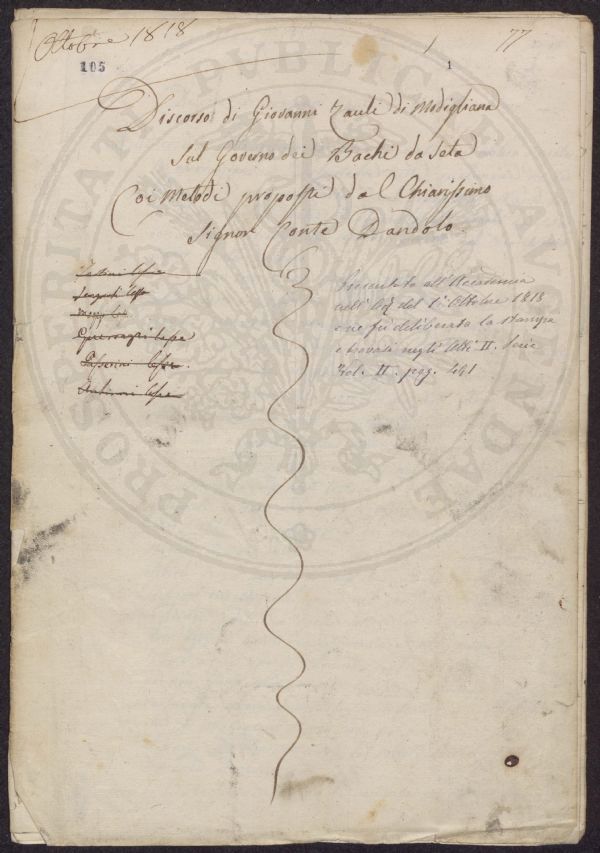 Ottobre 1818
77
105
1
Discorso di Giovanni Zauli di Modigliana
sul Governo dei Bachi da seta
Coi Metodi proposti dal Chiarissimo
Signor Conte Dandolo.
lesse
lesse
lesse
Passerini lesse.
lesse
Presentata all'Accademia
nell' del 1º Ottobre 1818
e ne fu deliberata la stampa
e trovasi negli Atti II. Serie
Vol. II. pag. 491
PROSPERITATI PUBLICAE AUGENDAE